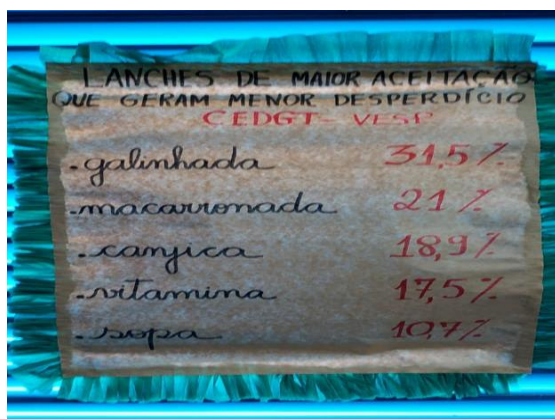 LANCHES DE MAIOR ACEITAÇÃO
QUE GERAM MENOR DESPERDÍCIO
CEDGT - VESP
.galinhada 31,5%
.macarronada 21%
.canjica 18,9%
.vitamina 17,5%
.sopa 10,7%